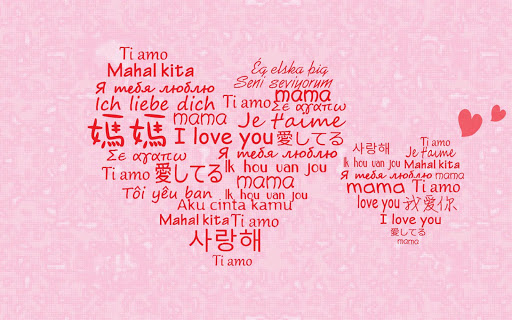 Ti amo
Mahal kita
Я тебя люблю
Ich liebe dich
Ég elska þig
Seni seviyorum
Ti amo mama
mama Σε αγαπω
Je t'aime
媽媽 I love you 愛してる
Σε αγαπω Я тебя люблю
Ti amo 愛してる Ik hou van jou
mama
Tôi yêu bạn Ik hou van jou
Aku cinta kamu
Mahal kita Ti amo
사랑해
Ti amo
사랑해 Ti amo
Je t'aime
Ik hou van jou Mahal kita
Я тебя люблю mama
mama Ti amo
love you 我愛你
I love you
愛してる
mama